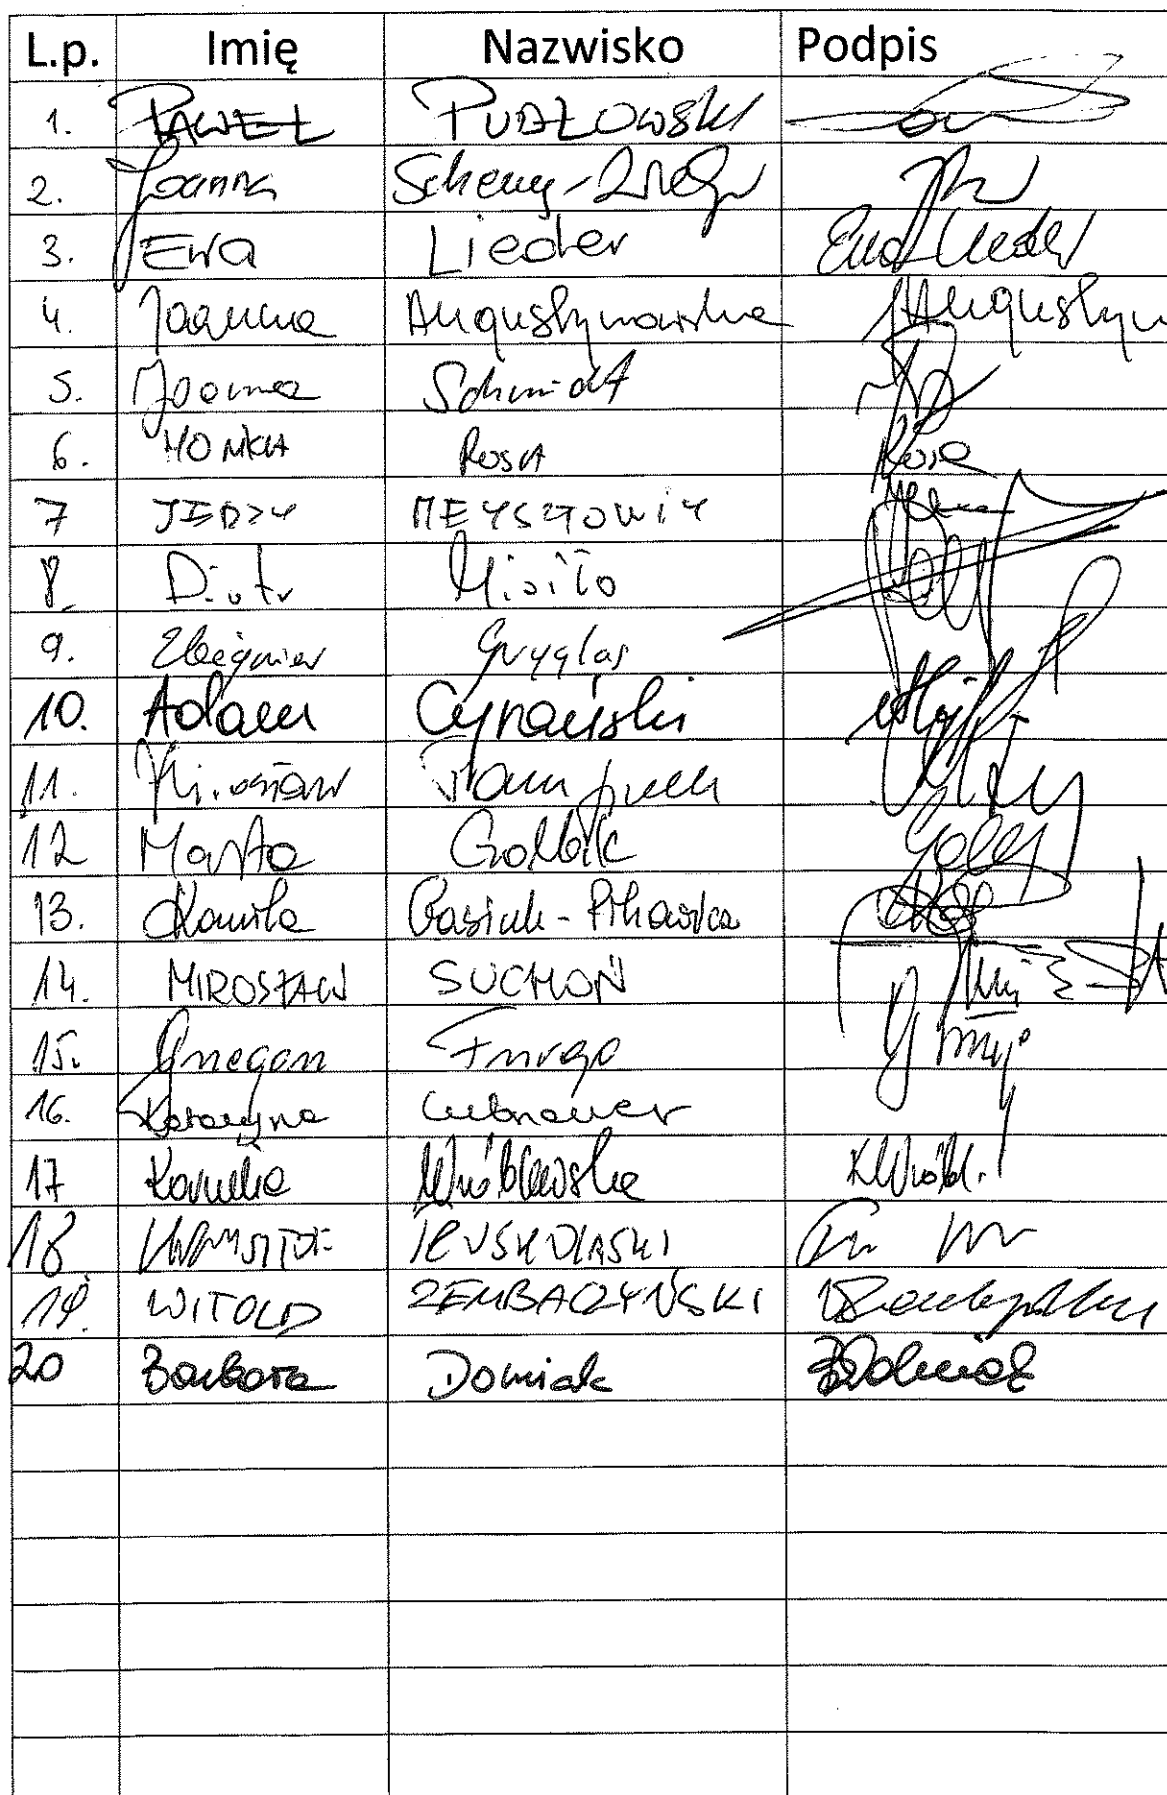 L.p. Imię Nazwisko Podpis
1. PAWEŁ PUDŁOWSKI
2. Joanna Scheuring-
3. EWA Lieder Ewa Lieder
4. Joanna Augustynowska JAugustyn
5. Joanna Schmidt
6. MONIKA ROSA Rosa
7 JERZY MEYSZTOWICZ
8. Piotr Misiło
9. Zbigniew Gryglas
10. Adam Cyrański
11. Mirosław Pampuch
12 Marta Golbik
13. Kamila Gasiuk-Pihowicz
14. MIROSŁAW SUCHOŃ
15. Grzegorz Furgo
16. Katarzyna Lubnauer
17 Kornelia Wróblewska KWrobl.
18 KRZYSZTOF
19. WITOLD ZEMBACZYŃSKI
20 Barbara Dolniak BDolniak